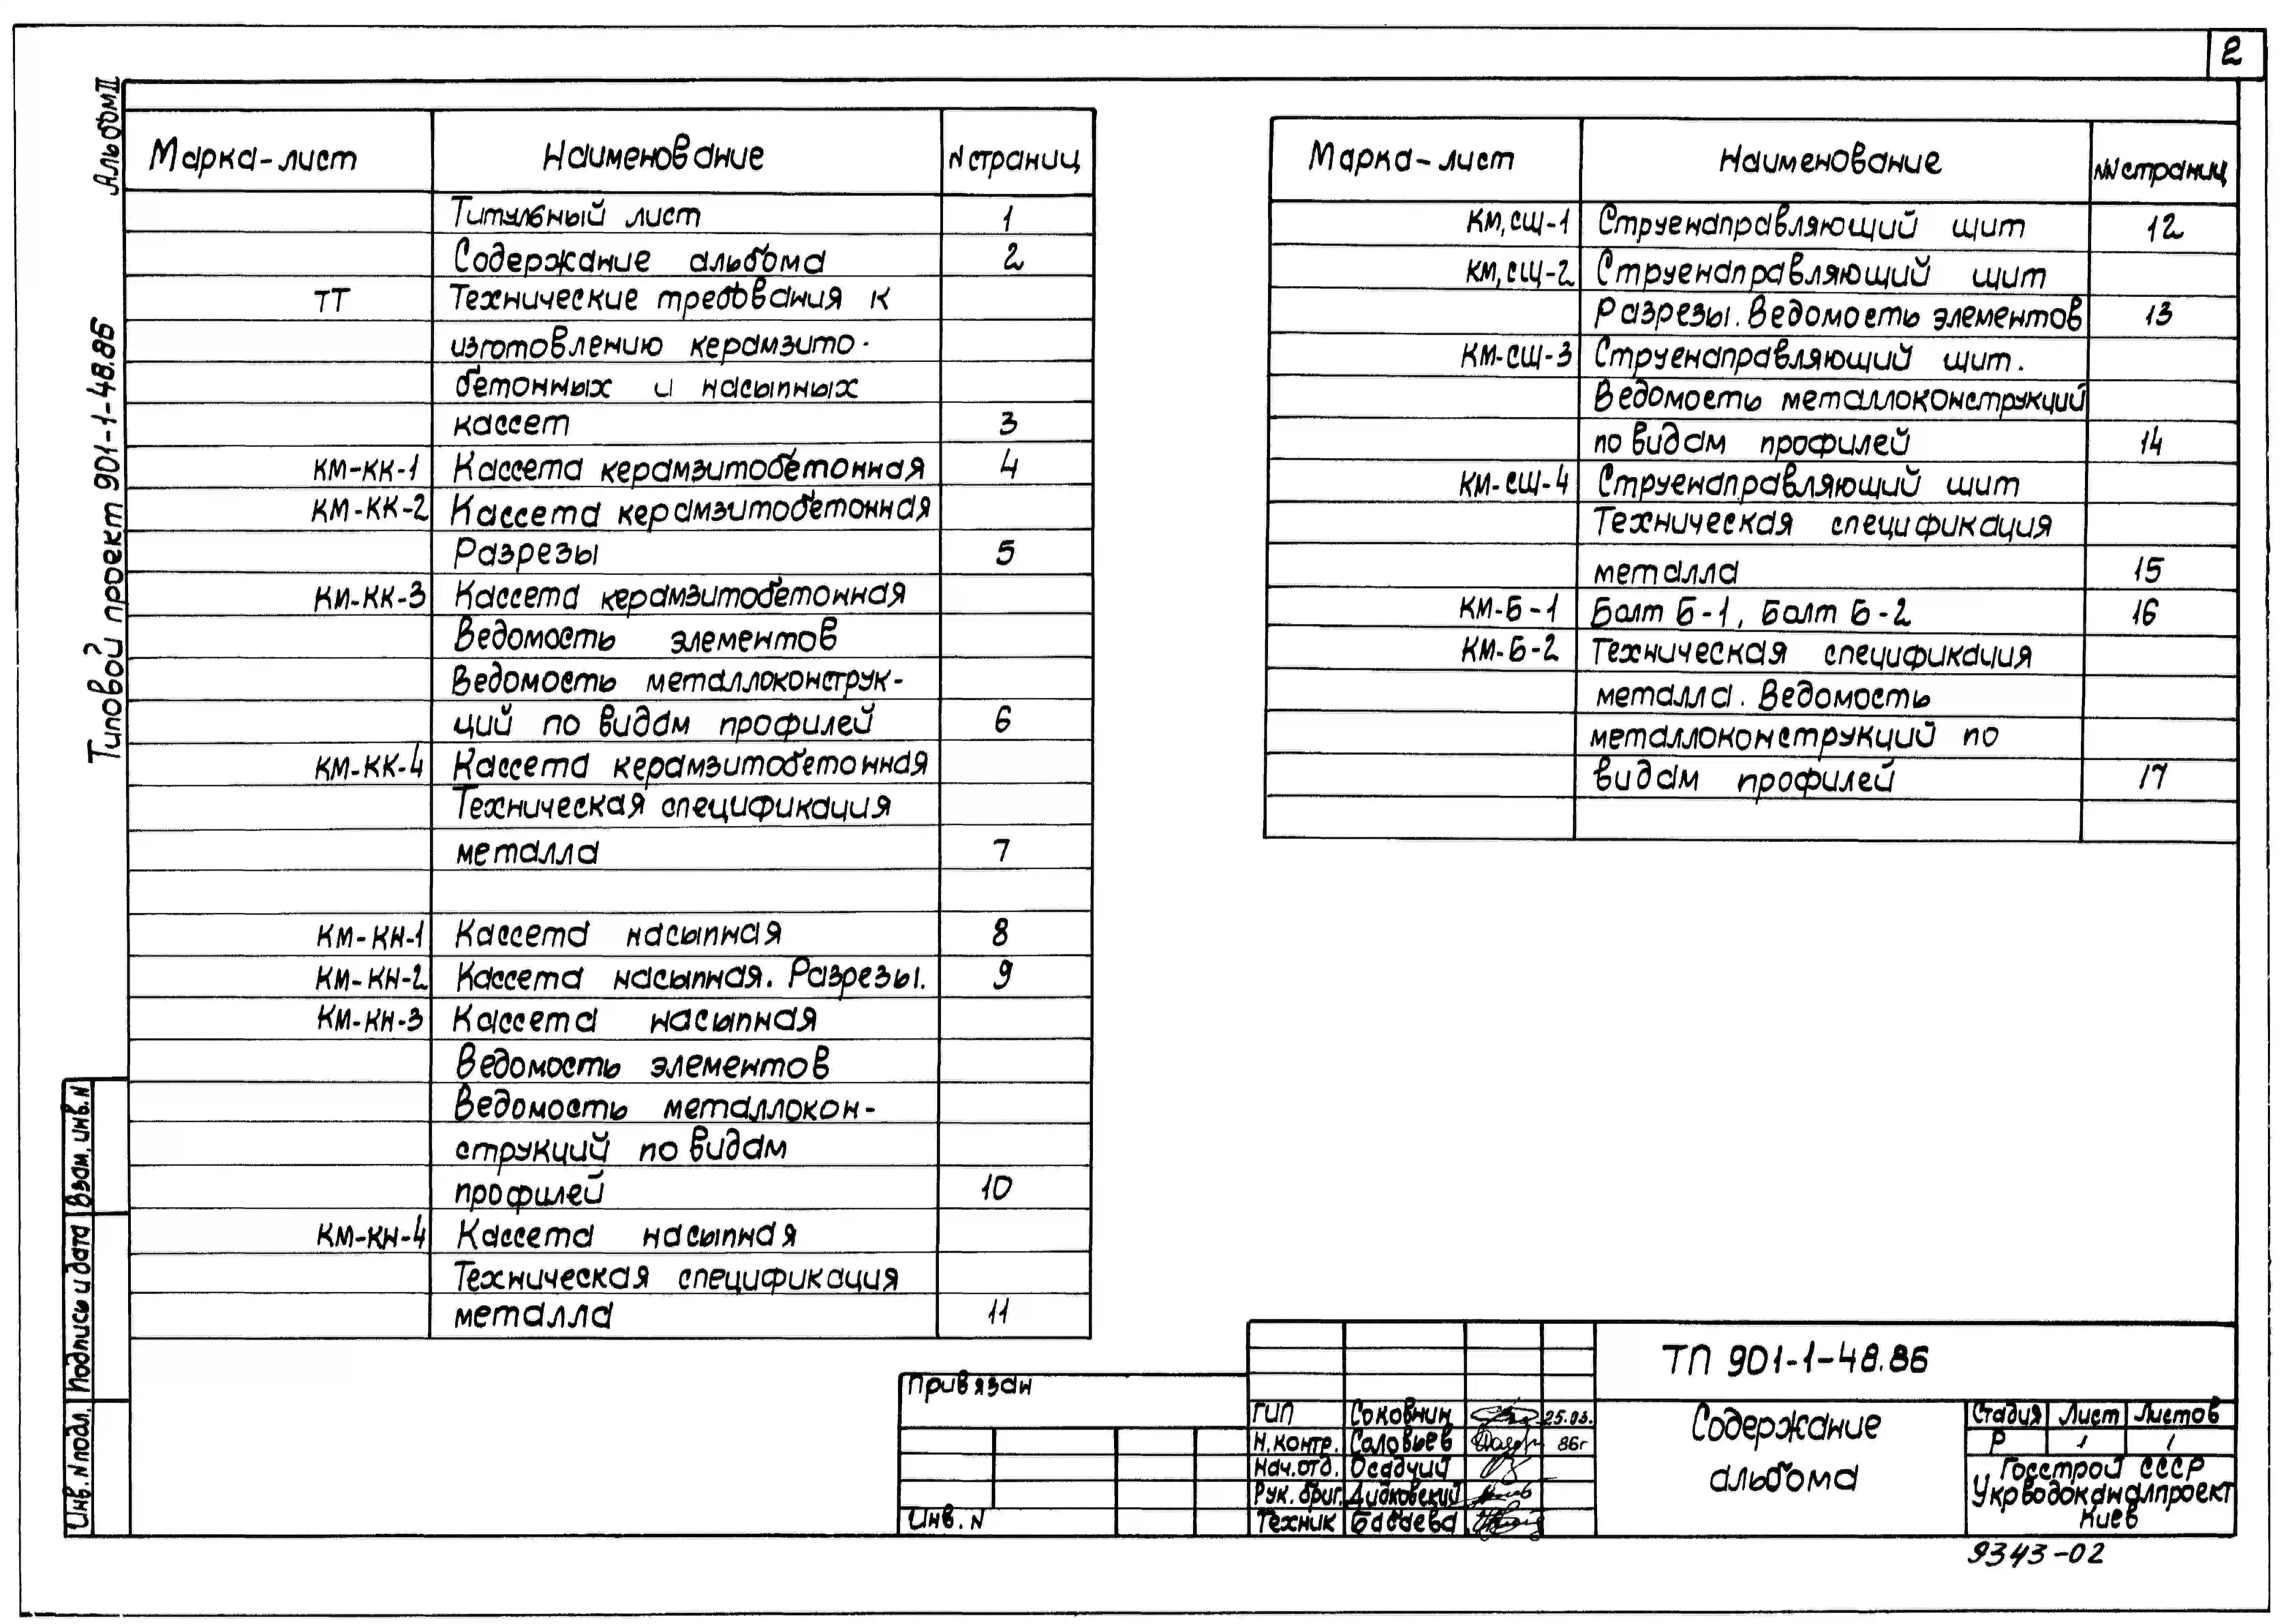 2
Альбом II
Типовой проект 901-1-48.86
Марка-лист Наименование N страниц
Титульный лист 1
Содержание альбома 2
ТТ Технические требования к
изготовлению керамзито-
бетонных и насыпных
кассет 3
КМ-КК-1 Кассета керамзитобетонная 4
КМ-КК-2 Кассета керамзитобетонная
Разрезы 5
КМ-КК-3 Кассета керамзитобетонная
Ведомость элементов
Ведомость металлоконструк-
ций по видам профилей 6
КМ-КК-4 Кассета керамзитобетонная
Техническая спецификация
металла 7
КМ-КН-1 Кассета насыпная 8
КМ-КН-2 Кассета насыпная. Разрезы. 9
КМ-КН-3 Кассета насыпная
Ведомость элементов
Ведомость металлокон-
струкций по видам
профилей 10
КМ-КН-4 Кассета насыпная
Техническая спецификация
металла 11
Марка-лист Наименование NN страниц
КМ,СЩ-1 Струенаправляющий щит 12
КМ,СЩ-2 Струенаправляющий щит
Разрезы. Ведомость элементов 13
КМ-СЩ-3 Струенаправляющий щит.
Ведомость металлоконструкций
по видам профилей 14
КМ-СЩ-4 Струенаправляющий щит
Техническая спецификация
металла 15
КМ-Б-1 Балт Б-1, Балт Б-2 16
КМ-Б-2 Техническая спецификация
металла. Ведомость
металлоконструкций по
видам профилей 17
Взам. инв. N
Подпись и дата
Инв. N подл.
Привязан
Инв. N
ГИП Соковнин 25.03.
Н. контр. Саловьев 86г
Нач. отд. Осадчий
Рук. бриг. Дидковский
Техник Бабаева
ТП 901-1-48.86
Содержание
альбома
Стадия Лист Листов
Р 1 1
Госстрой СССР
Укрводоканалпроект
Киев
9343-02